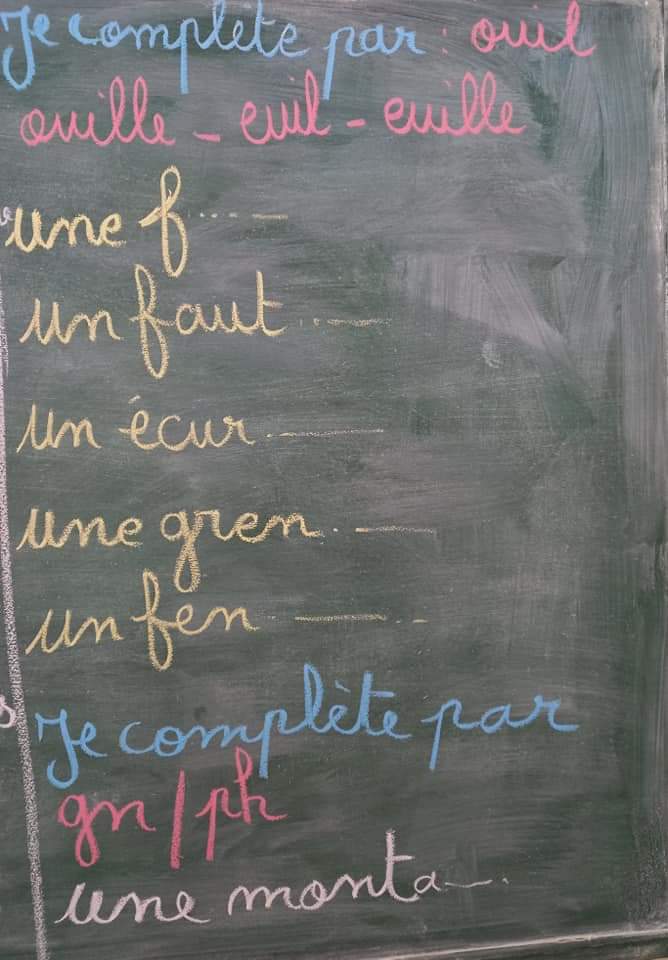 Je complète par : ouil
ouille - euil - euille
une f.....
un faut.....
un écur.....
une gren.....
un fen.....
Je complète par
gn/ph
une monta...